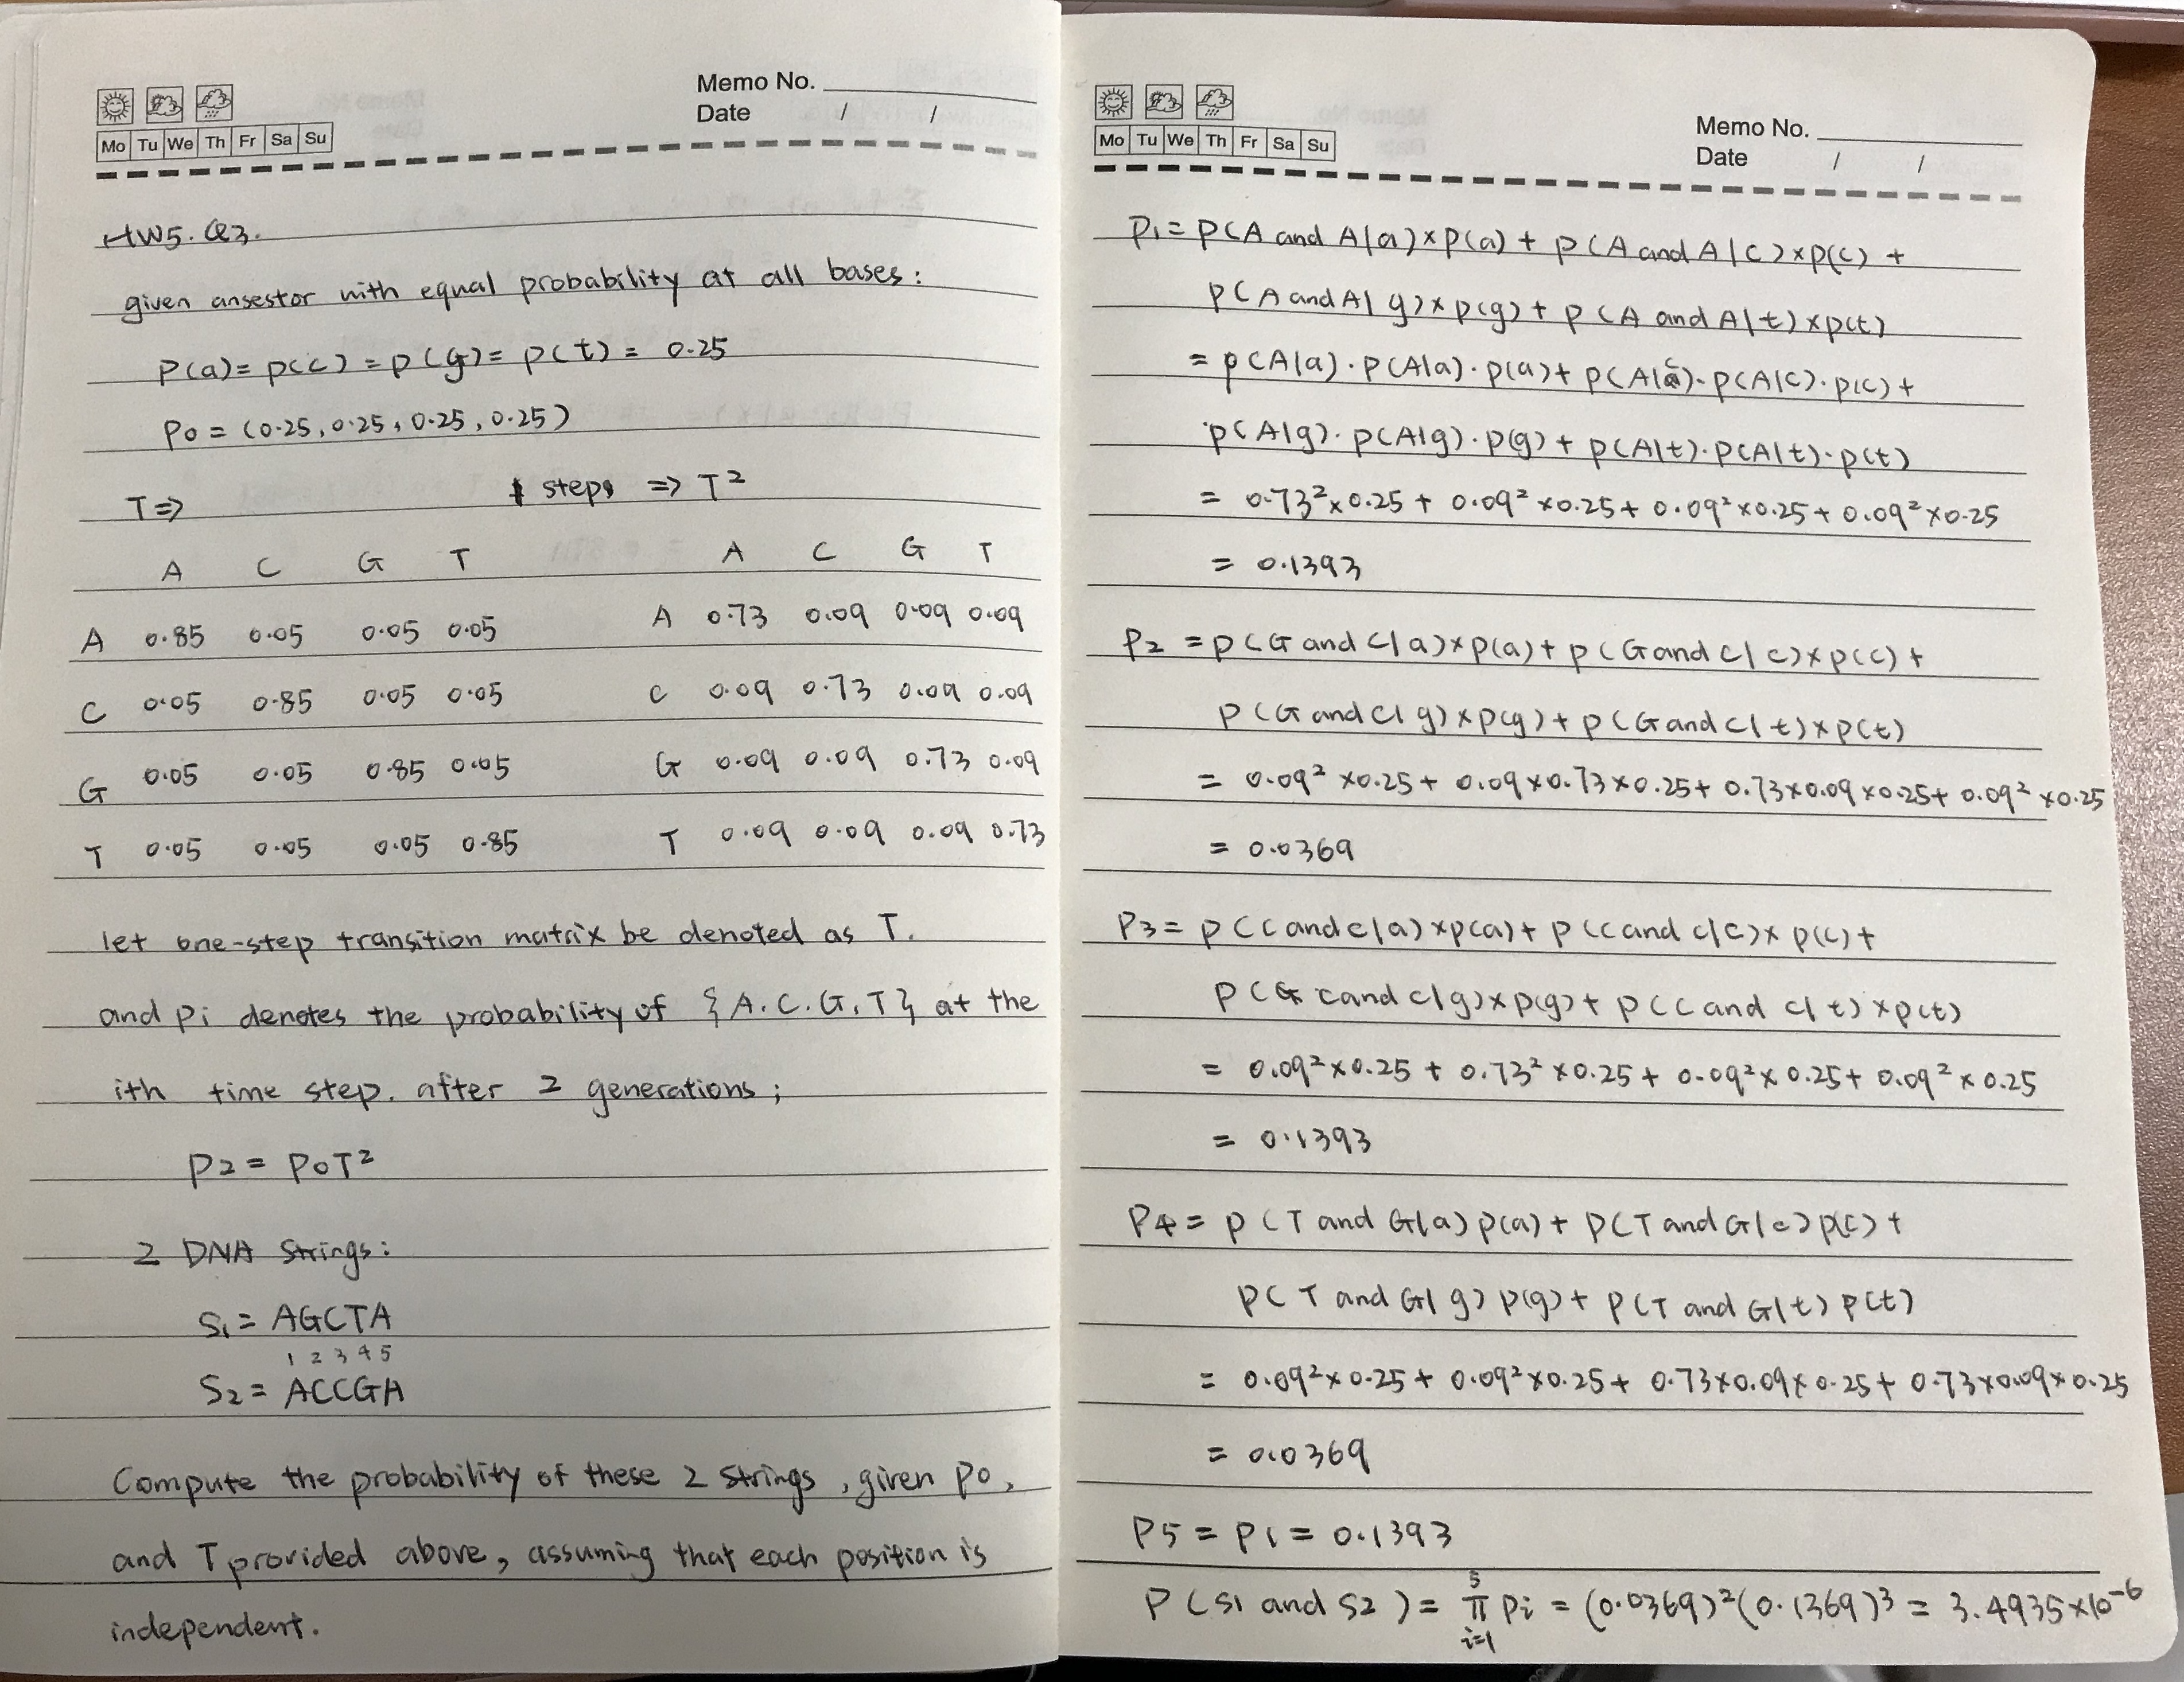 Memo No.
Date / /
Mo Tu We Th Fr Sa Su
HW5. Q3.
given ansestor with equal probability at all bases:
P(a) = p(c) = p(g) = p(t) = 0.25
P0 = (0.25, 0.25, 0.25, 0.25)
T => steps => T²
A C G T A C G T
A 0.85 0.05 0.05 0.05 A 0.73 0.09 0.09 0.09
C 0.05 0.85 0.05 0.05 C 0.09 0.73 0.09 0.09
G 0.05 0.05 0.85 0.05 G 0.09 0.09 0.73 0.09
T 0.05 0.05 0.05 0.85 T 0.09 0.09 0.09 0.73
let one-step transition matrix be denoted as T.
and pi denotes the probability of {A.C.G.T} at the
ith time step. after 2 generations;
P2 = P0T²
2 DNA Strings:
S1 = AGCTA
1 2 3 4 5
S2 = ACCGA
Compute the probability of these 2 strings, given p0,
and T provided above, assuming that each position is
independent.
Memo No.
Date / /
Mo Tu We Th Fr Sa Su
P1 = P(A and A|a)×p(a) + p(A and A|c)×p(c) +
p(A and A|g)×p(g) + p(A and A|t)×p(t)
= p(A|a)·p(A|a)·p(a) + p(A|c)·p(A|c)·p(c) +
p(A|g)·p(A|g)·p(g) + p(A|t)·p(A|t)·p(t)
= 0.73²×0.25 + 0.09²×0.25 + 0.09²×0.25 + 0.09²×0.25
= 0.1393
P2 = p(G and C|a)×p(a) + p(G and C|c)×p(c) +
p(G and C|g)×p(g) + p(G and C|t)×p(t)
= 0.09²×0.25 + 0.09×0.73×0.25 + 0.73×0.09×0.25 + 0.09²×0.25
= 0.0369
P3 = p(C and C|a)×p(a) + p(C and C|c)×p(c) +
p(C and C|g)×p(g) + p(C and C|t)×p(t)
= 0.09²×0.25 + 0.73²×0.25 + 0.09²×0.25 + 0.09²×0.25
= 0.1393
P4 = p(T and G|a)p(a) + p(T and G|c)p(c) +
p(T and G|g)p(g) + p(T and G|t)p(t)
= 0.09²×0.25 + 0.09²×0.25 + 0.73×0.09×0.25 + 0.73×0.09×0.25
= 0.0369
P5 = P1 = 0.1393
P(S1 and S2) = ∏_{i=1}^{5} Pi = (0.0369)²(0.1369)³ = 3.4935×10⁻⁶